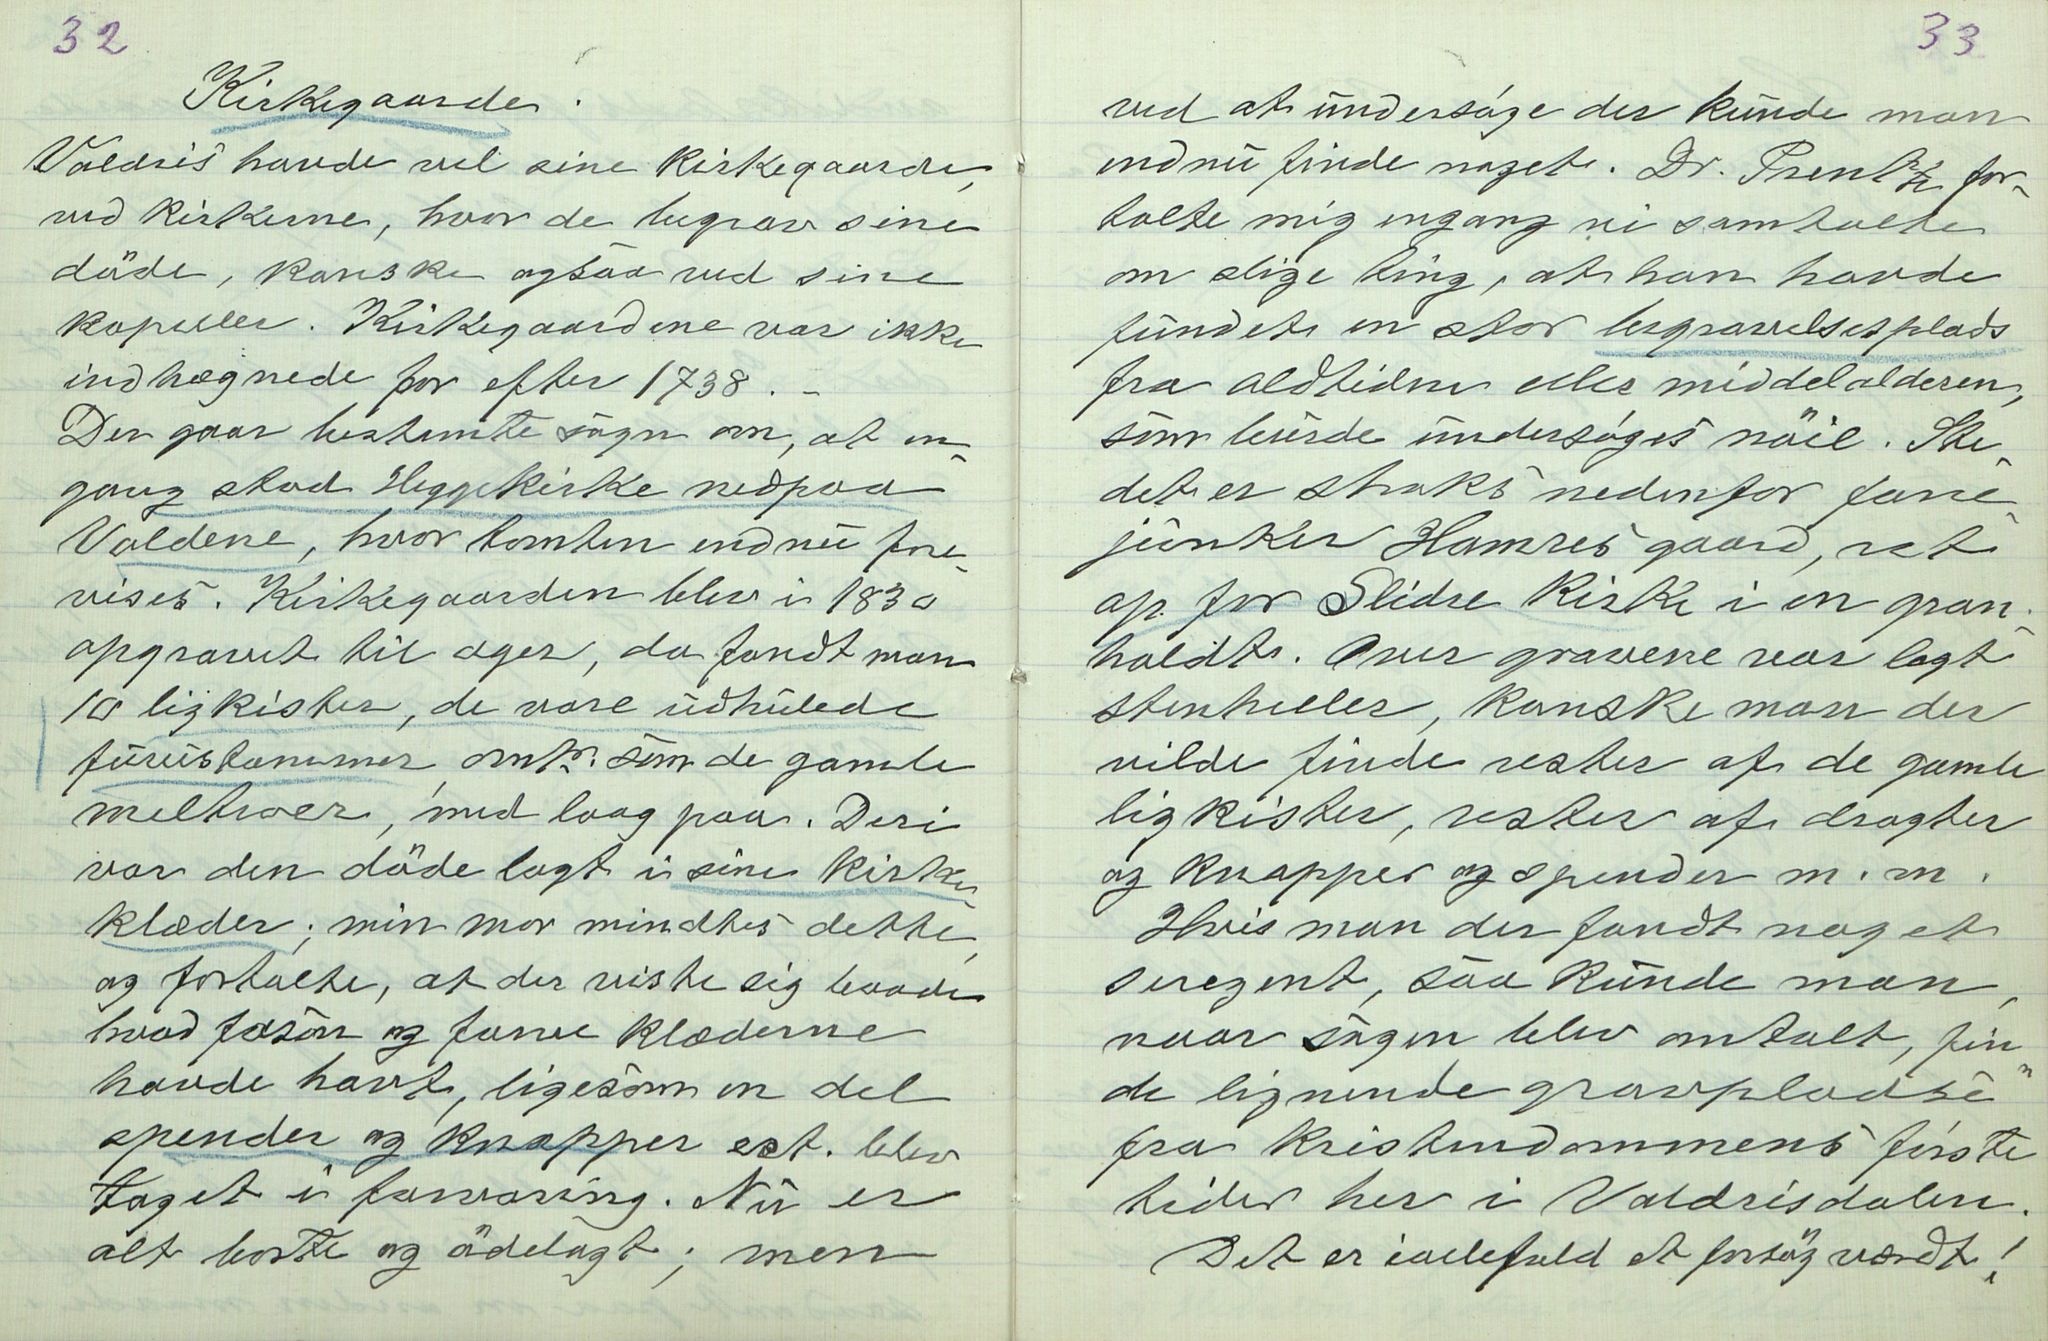 32
Kirkegaarde.
Valdris havde vel sine Kirkegaarde,
ved Kirkerne, hvor de begrov sine
döde, kanske ogsaa ved sine
kapeller. Kirkegaardene var ikke
indhægnede for efter 1738. -
Der gaar bestemte sagn om, at en-
gang stod Heggekirke nedpaa
Valdene, hvor tomten endnu fore-
vises. Kirkegaarden blev i 1830
opgravet til ager, da fandt man
10 ligkister, de vare udhulede
furustammer omtr. som de gamle
meltroer, med laag paa. Deri
var den döde lagt i sine Kirke
klæder; min mor mindtes dette,
og fortalte, at der viste sig baade
hvad fason og farve klæderne
havde havt, ligesom en del
spender og knapper ect. blev
taget i forvaring. Nu er
alt borte og ödelagt; men
33
ved at undersöge der kunde man
endnu finde noget. Dr. Prentz for-
talte mig engang vi samtalte
om slige ting, at han havde
fundet en stor begravelsesplads
fra oldtiden eller middelalderen,
som burde undersöges nöie. Ste-
det er straks nedenfor fane-
junker Hamres gaard, ret
op for Slidre Kirke i en gran-
holdt. Over gravene var lagt
stenheller, kanske man der
vilde finde rester af de gamle
ligkister, rester af dragter
og knapper og spender m.m.
Hvis man der fandt noget
seregent, saa kunde man,
naar sagen blev omtalt, fin-
de lignende gravpladse
fra Kristendommens förste
tider her i Valdrisdalen.
Det er iallefald et forsög værdt!